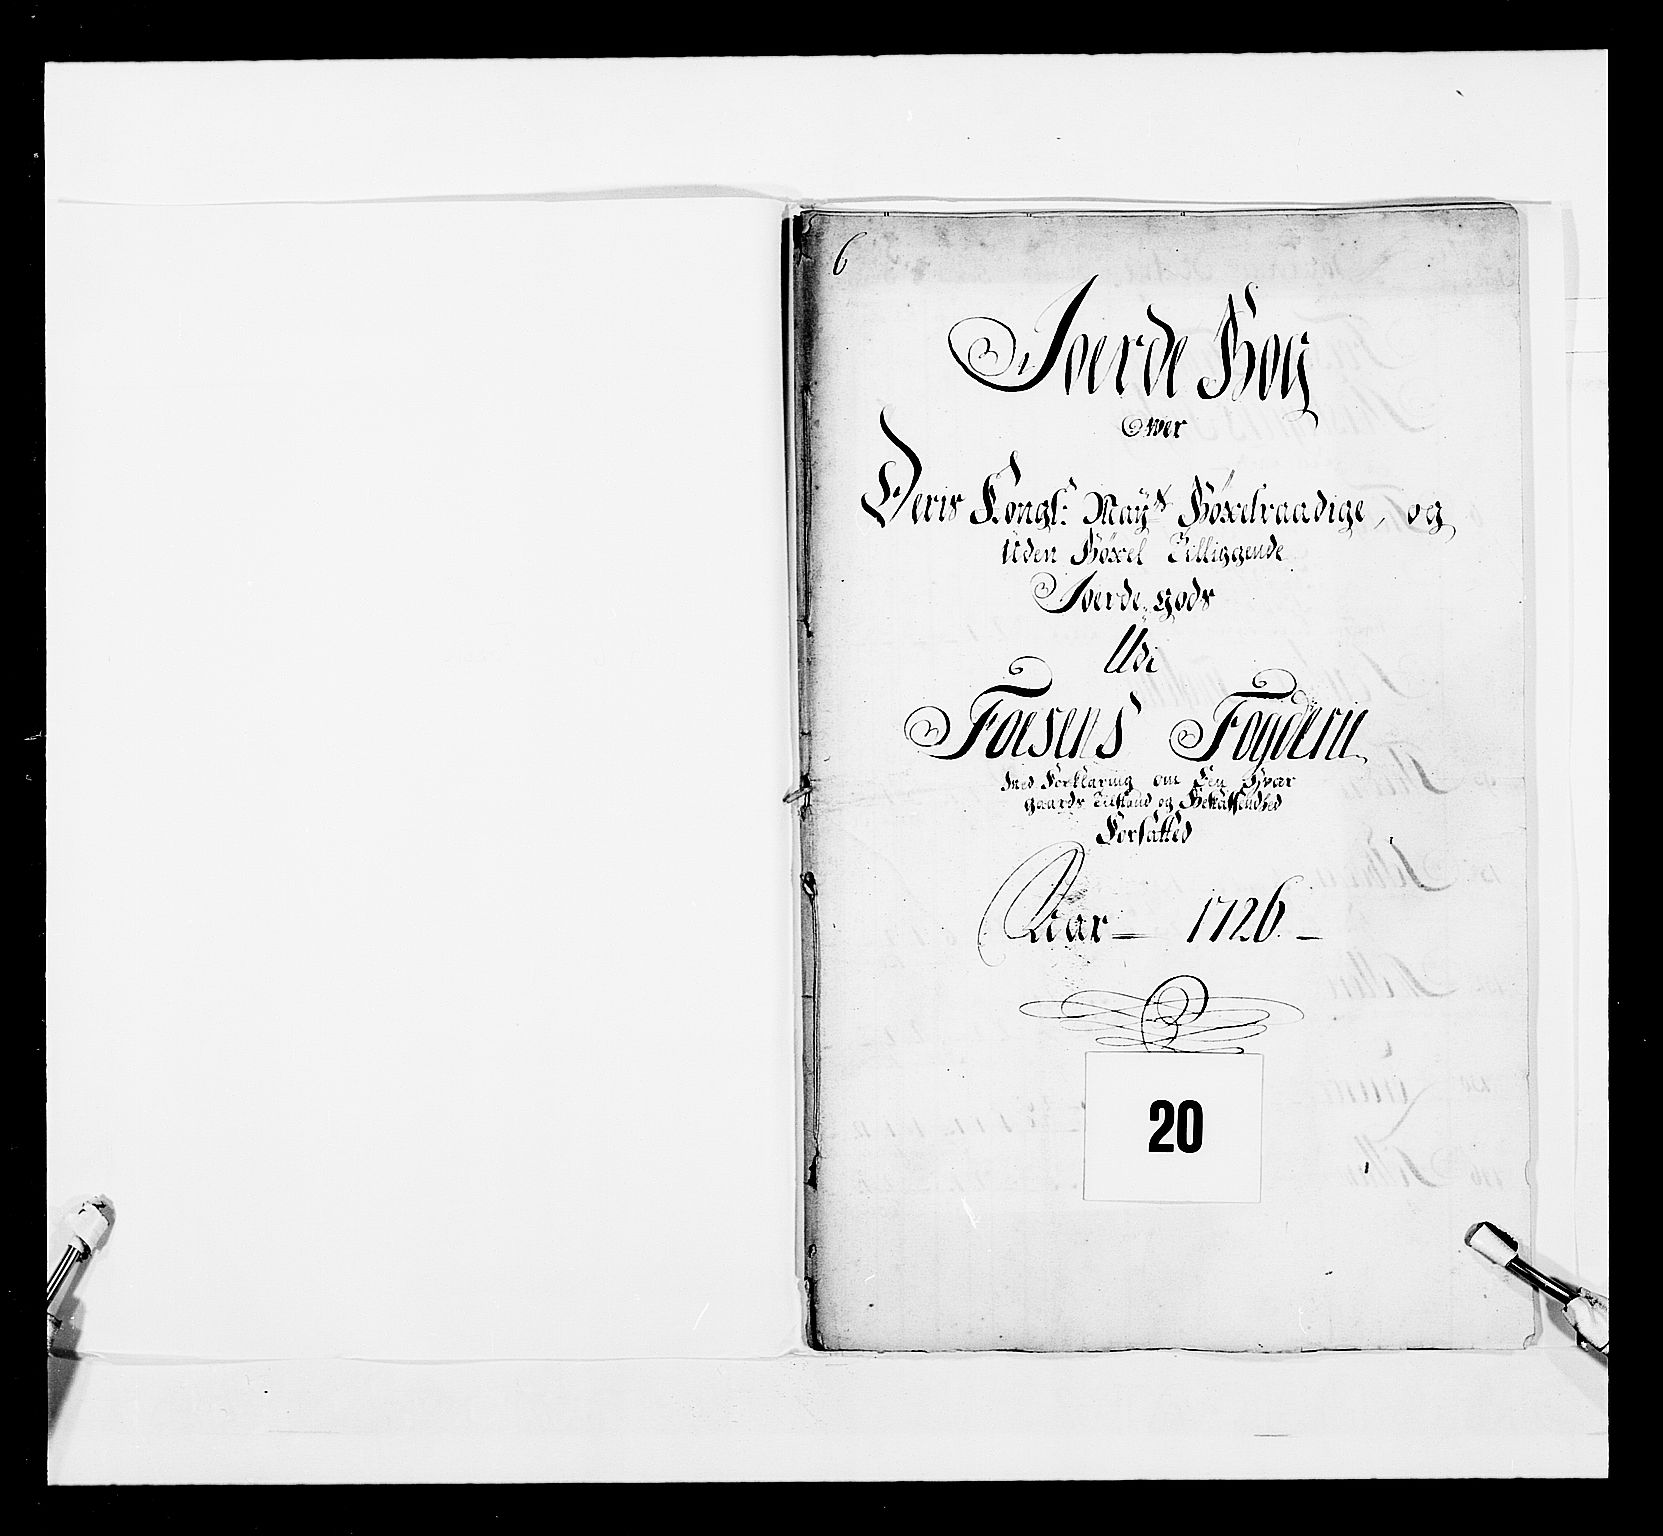 6
Joerde Bog
Over
Deris Kongl: Maÿts Böxelraadige, og
Uden Böxel Tilliggende
Joerde gods
Udi
Foesens Fogderie
Med Forklaring om Een Hvær
gaards Tilstand og Beskaffendhed
Forfatted
Aar 1726.
20